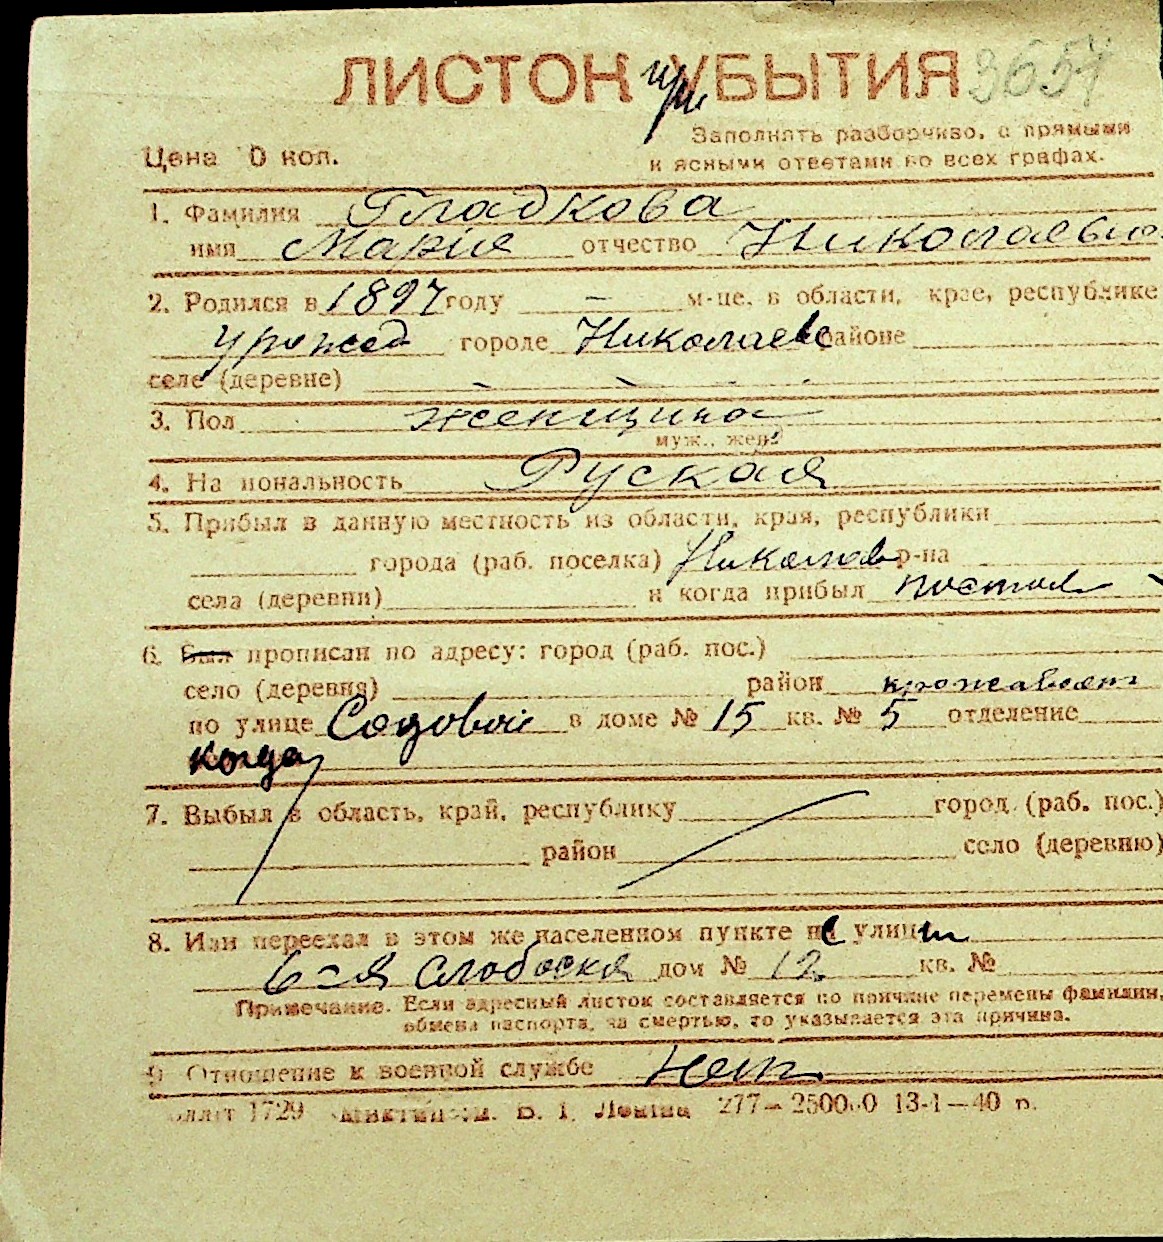 ЛИСТОК при УБЫТИЯ 3654
Заполнять разборчиво, с прямыми
Цена 10 коп.
и ясными ответами во всех графах.
1. Фамилия Гладкова
имя Мария отчество Николаевн
2. Родился в 1897 году — м-це, в области, крае, республике
урожед городе Николаев районе
селе (деревне)
3. Пол женщина
муж., жен.
4. Национальность Руская
5. Прибыл в данную местность из области, края, республики
города (раб. поселка) Николаев р-на
села (деревни) и когда прибыл постоя
6. Был прописан по адресу: город (раб. пос.)
село (деревня) район проживает
по улице Садовой в доме № 15 кв. № 5 отделение
когда
7. Выбыл в область, край, республику город (раб. пос.)
район село (деревню)
8. Или переехал в этом же населенном пункте с улицы
6-я Слободская дом № 12 кв. №
Примечание. Если адресный листок составляется по причине перемены фамилии,
обмена паспорта, за смертью, то указывается эта причина.
9. Отношение к военной службе Нет
1729 им. В. И. Ленина 277— 13-I—40 г.